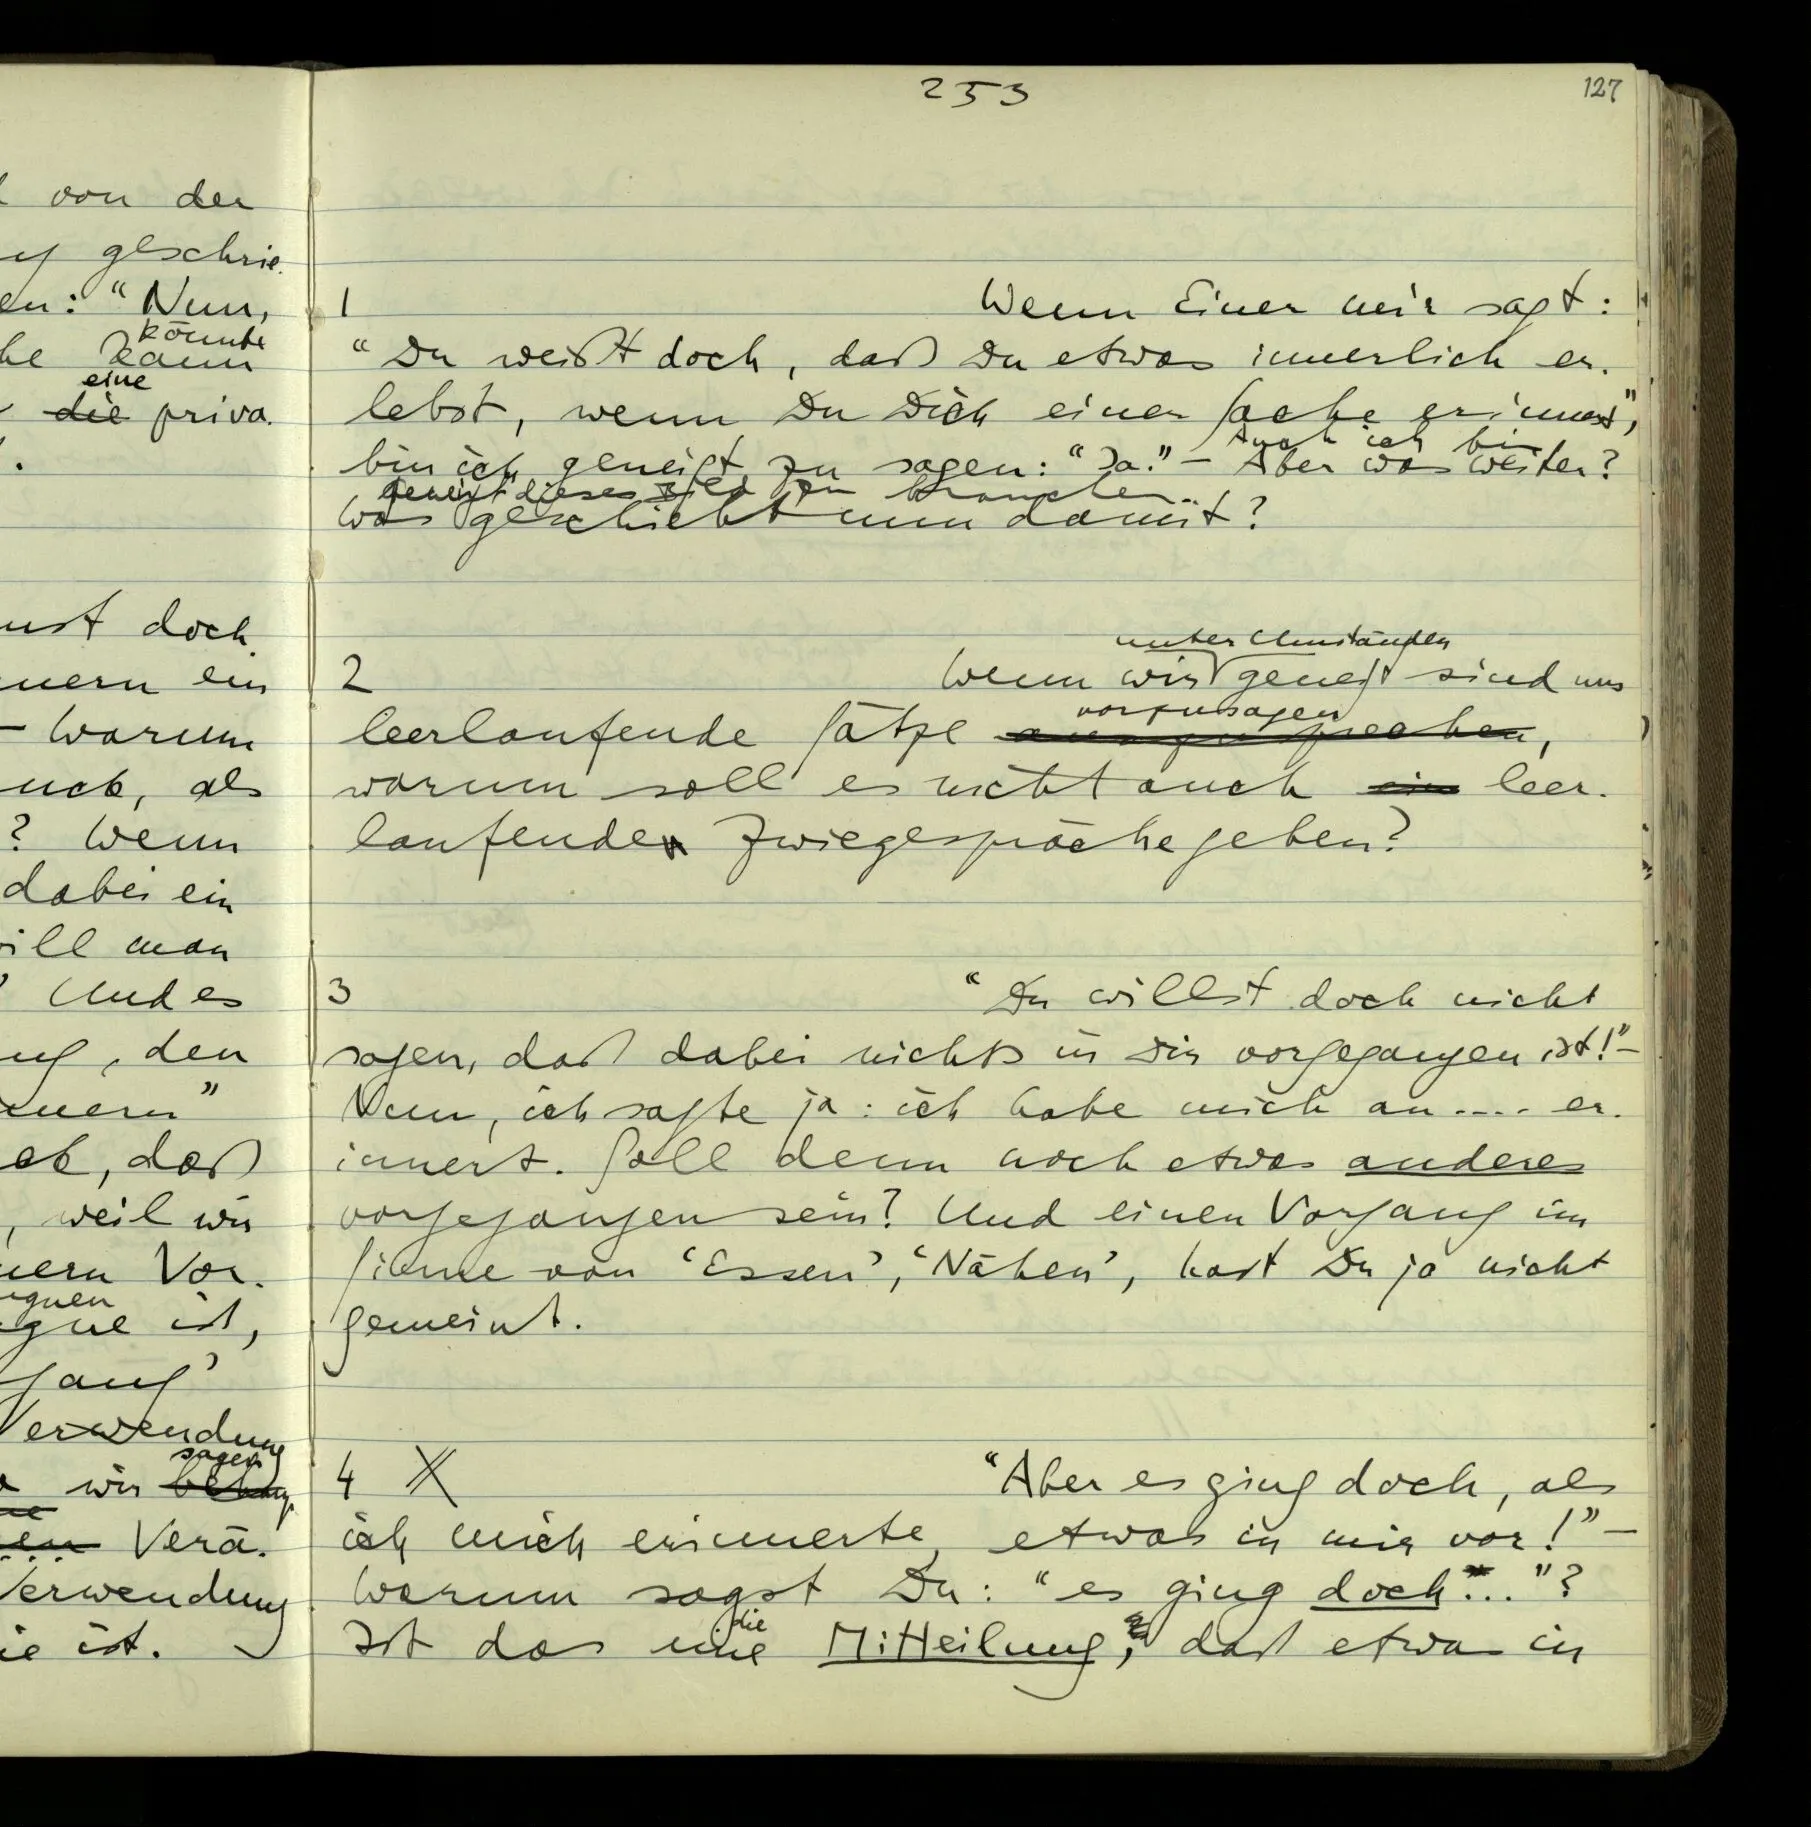 253
127
von der
geschrie.
en: “Nun,
könnte
kann
eine
die priva.
.
nst doch
nern ein
– Warum
uck, als
? Wenn
dabei ein
will man
Und es
ng, den
nnern”
daß
, weil wir
nern Vor.
ignen
igne ist,
gang’
Verwendung
sagen
wir
Verä.
Verwendung
ie ist.
1 Wenn Einer mir sagt:
“Du weißt doch, daß Du etwas innerlich er.
lebst, wenn Du Dich einer Sache erinnerst”,
Auch ich bin
bin ich geneigt zu sagen: “Ja.” – Aber was weiter?
geneigt dieses Bild zu brauchen.
Was geschieht nun damit?
unter Umständen
2 Wenn wir geneigt sind uns
vorzusagen
leerlaufende Sätze auszusprechen,
warum soll es nicht auch ein leer.
laufende Zwiegespräche geben?
3 “Du willst doch nicht
sagen, daß dabei nichts in Dir vorgegangen ist!” –
Nun, ich sagte ja: ich habe mich an .... er.
innert. Soll denn noch etwas anderes
vorgegangen sein? Und einen Vorgang im
Sinne von ‘Essen’, ‘Nähen’, hast Du ja nicht
gemeint.
4 “Aber es ging doch, als
ich mich erinnerte, etwas in mir vor!” –
Warum sagst Du: “es ging doch ...”?
die
Ist das eine Mitteilung, daß etwas in